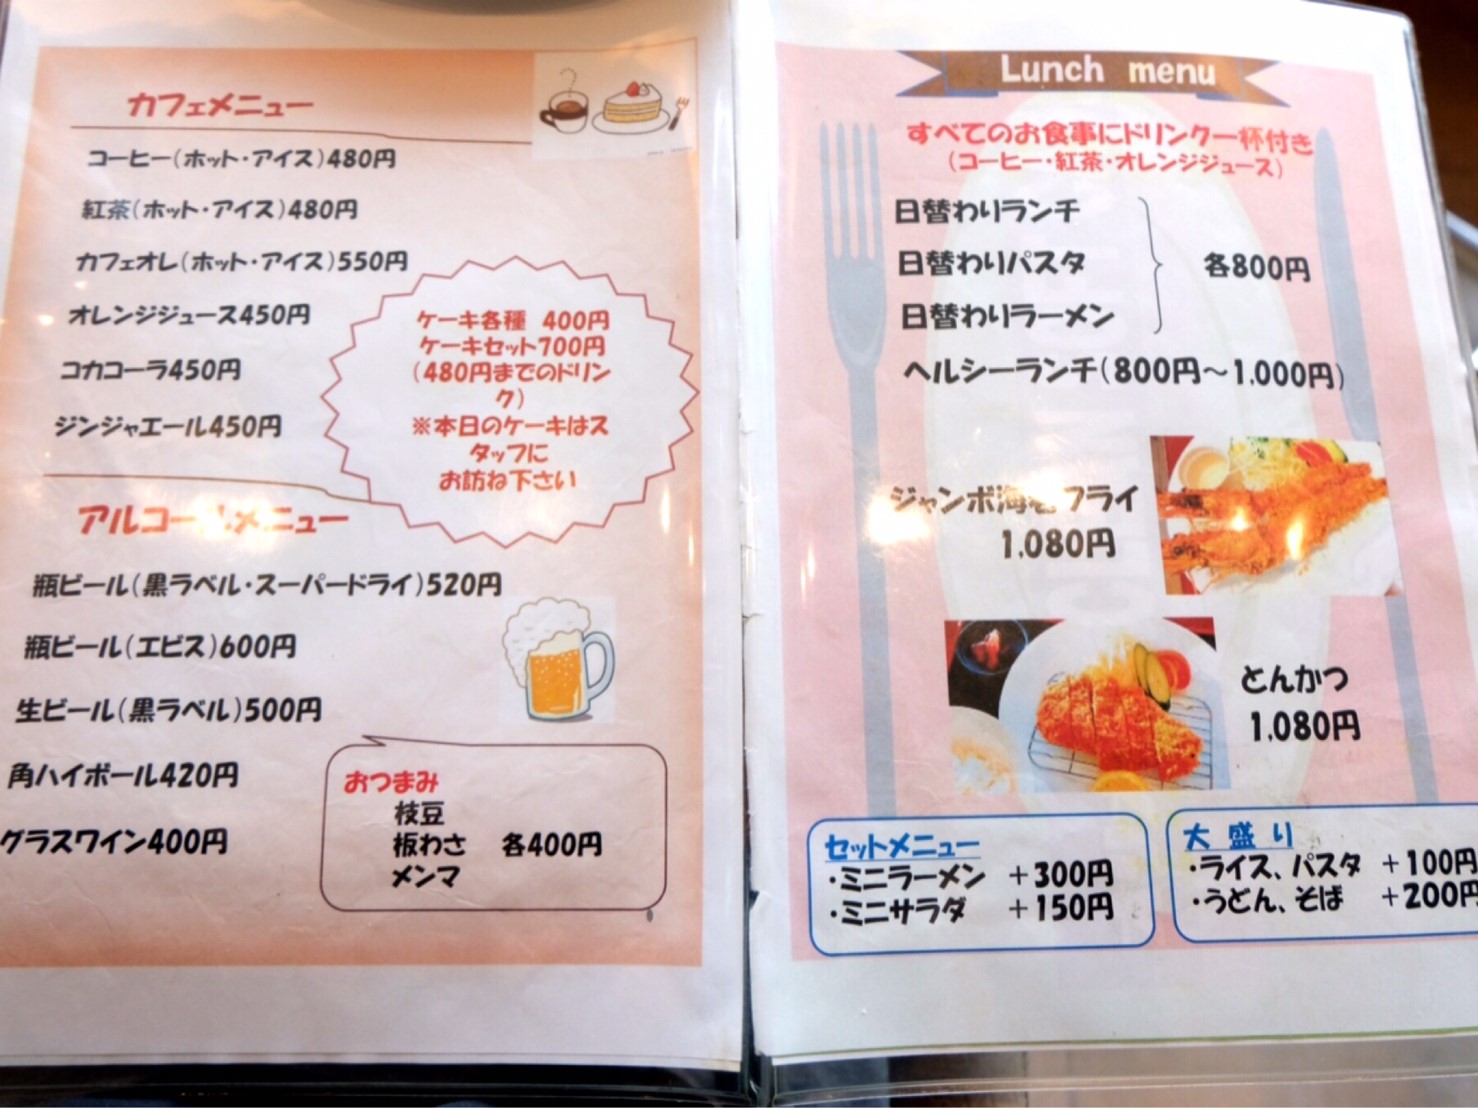 カフェメニュー
コーヒー(ホット・アイス)480円
紅茶(ホット・アイス)480円
カフェオレ(ホット・アイス)550円
オレンジジュース450円
コカコーラ450円
ジンジャエール450円
ケーキ各種 400円
ケーキセット700円
(480円までのドリン
ク)
※本日のケーキはス
タッフに
お訪ね下さい
アルコールメニュー
瓶ビール(黒ラベル・スーパードライ)520円
瓶ビール(エビス)600円
生ビール(黒ラベル)500円
角ハイボール420円
グラスワイン400円
おつまみ
枝豆
板わさ 各400円
メンマ
Lunch menu
すべてのお食事にドリンク一杯付き
(コーヒー・紅茶・オレンジジュース)
日替わりランチ
日替わりパスタ 各800円
日替わりラーメン
ヘルシーランチ(800円～1,000円)
ジャンボ海老フライ
1,080円
とんかつ
1,080円
セットメニュー
・ミニラーメン +300円
・ミニサラダ +150円
大盛り
・ライス、パスタ +100円
・うどん、そば +200円